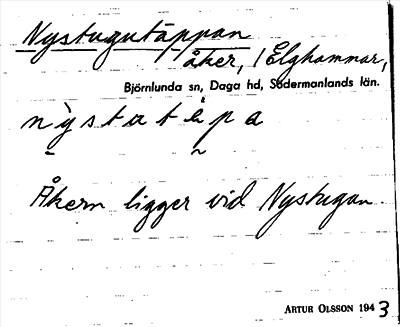 Nystugutäppan
åker, / Elghammar,
Björnlunda sn, Daga hd, Södermanlands län.
Åkern ligger vid Nystugan.
ARTUR OLSSON 1943